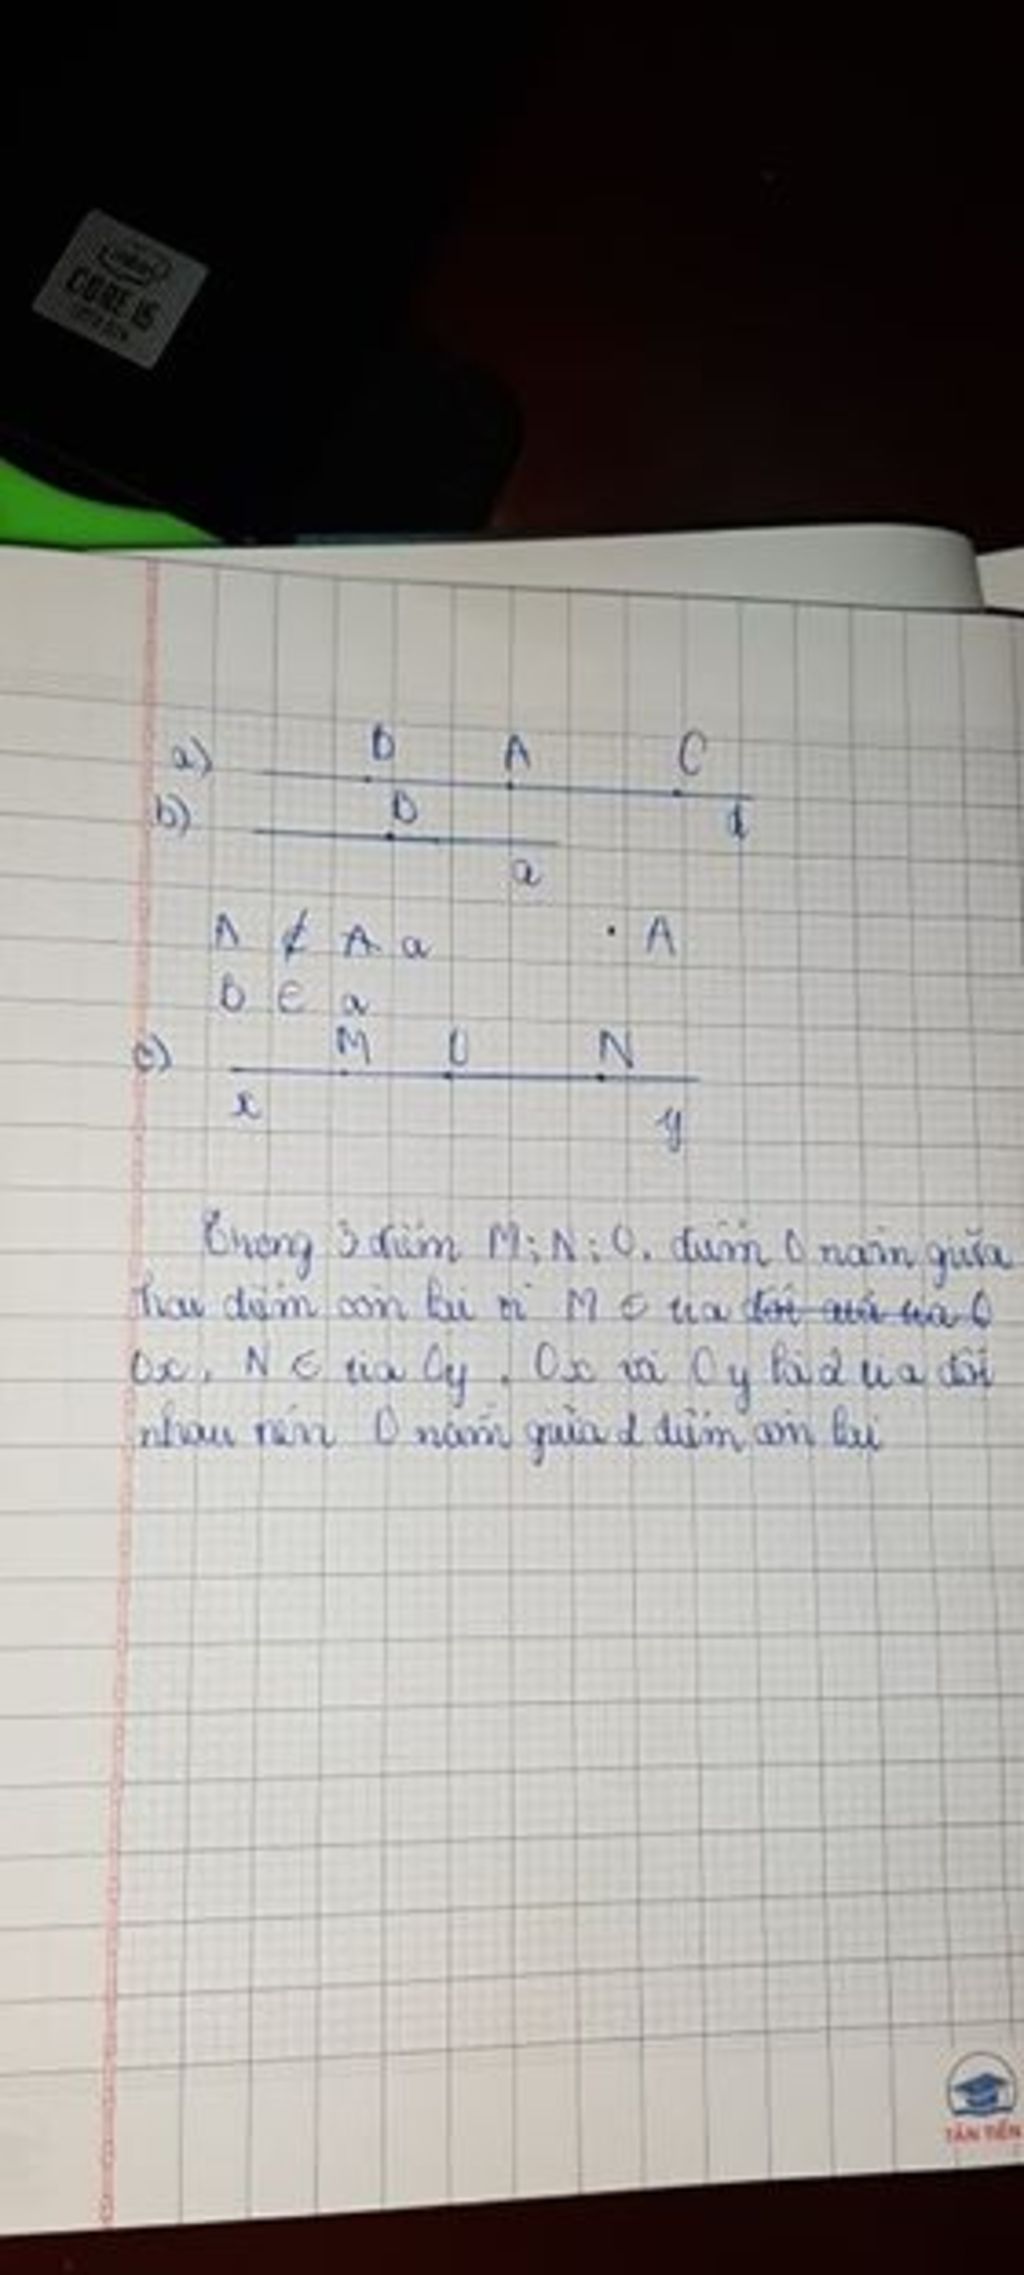 CORE i5
a) B A C
d
b) B
a
A ∉ A a
. A
B ∈ a
c) M O N
x y
Trong 3 điểm M; N; O. điểm O nằm giữa
hai điểm còn lại vì M ∈ tia đối của tia O
Ox, N ∈ tia Oy. Ox và Oy là 2 tia đối
nhau nên O nằm giữa 2 điểm còn lại
TÂN TIẾN